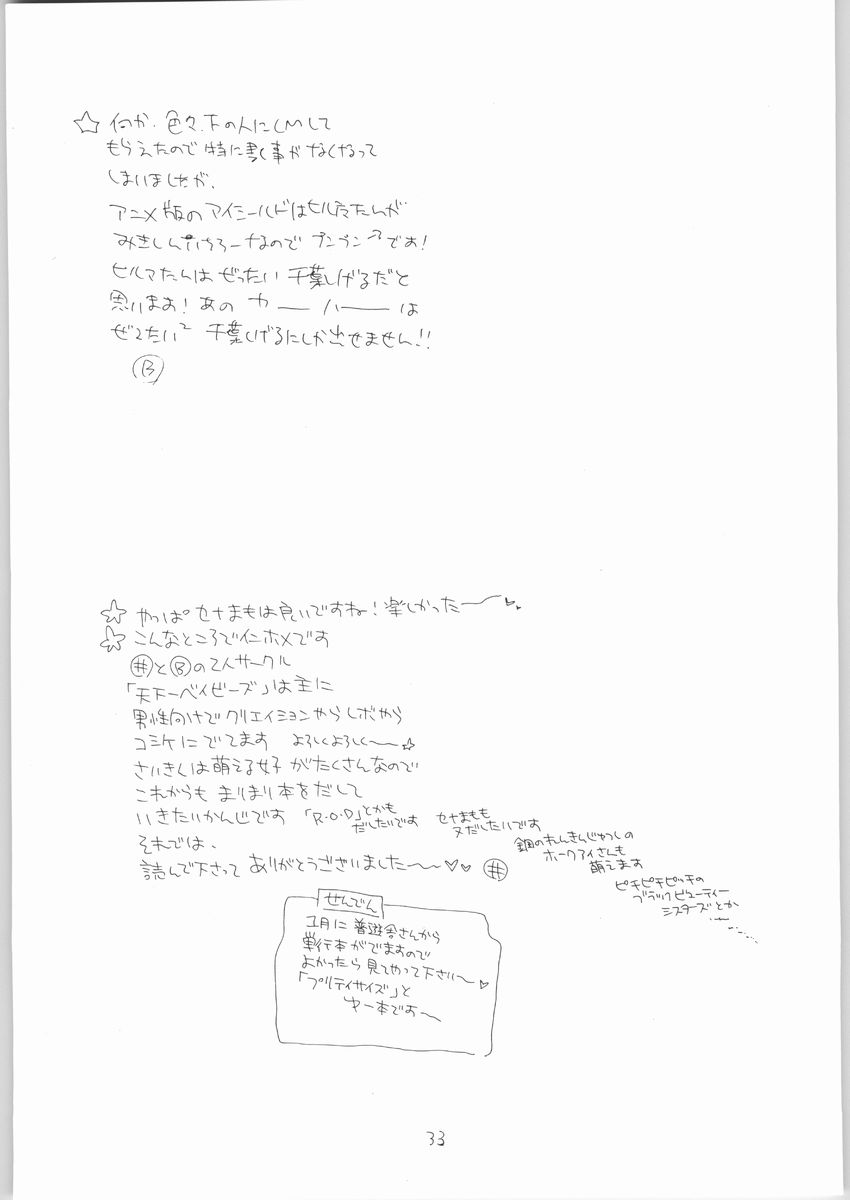 ☆ 何か、色々、下の人にCMして
もらえたので 特に書く事がなくなって
しまいましたが、
アニメ版の アイシールドはヒルマたんが
みきしんいちろーなので プンプンです!
ヒルマたんは ぜったい 千葉しげるだと
思います! あの カーーハーーは
ぜったい² 千葉しげるにしか出せません!!
Ⓑ
☆ やっぱ セナまもは良いですね! 楽しかったー
☆ こんなところでインホメです
㊉とⒷの2人サークル
「天下一ベイビーズ」は主に
男性向けで クリエイションやら レボやら
コミケに でてます よろしくよろしく〜☆
さいきんは萌える女子 がたくさんなので
これからも まりまり本をだして
いきたいかんじです 「R.O.D」とかも
だしたいです セナまもも
又だしたいです
鋼のれんきんじゅつしの
ホークアイさんも
萌えます
ピチピチピッチの
ブラックビューティー
シスターズとか
……
それでは、
読んで下さって ありがとうございました〜〜♡♡ #
せんでん
1月に 普遊舎さんから
単行本がでますので
よかったら 見てやって下さい〜♡
「プリティサイズ」と
ゆー本です〜
33